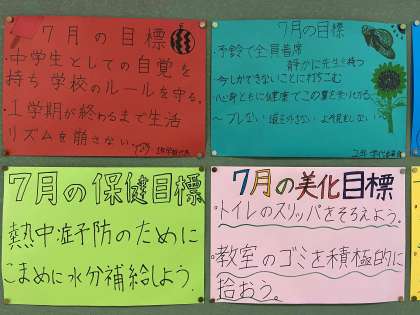 7月の目標
・中学生としての自覚を
持ち学校のルールを守る。
・1学期が終わるまで生活
リズムを崩さない
7月の目標
・予鈴で全員着席
静かに先生を待つ
今しかできないことに打ちこむ
心身ともに健康でこの夏を
〜ブレない
7月の保健目標
熱中症予防のために
こまめに水分補給しよう。
7月の美化目標
・トイレのスリッパをそろえよう。
・教室のゴミを積極的に
拾おう。